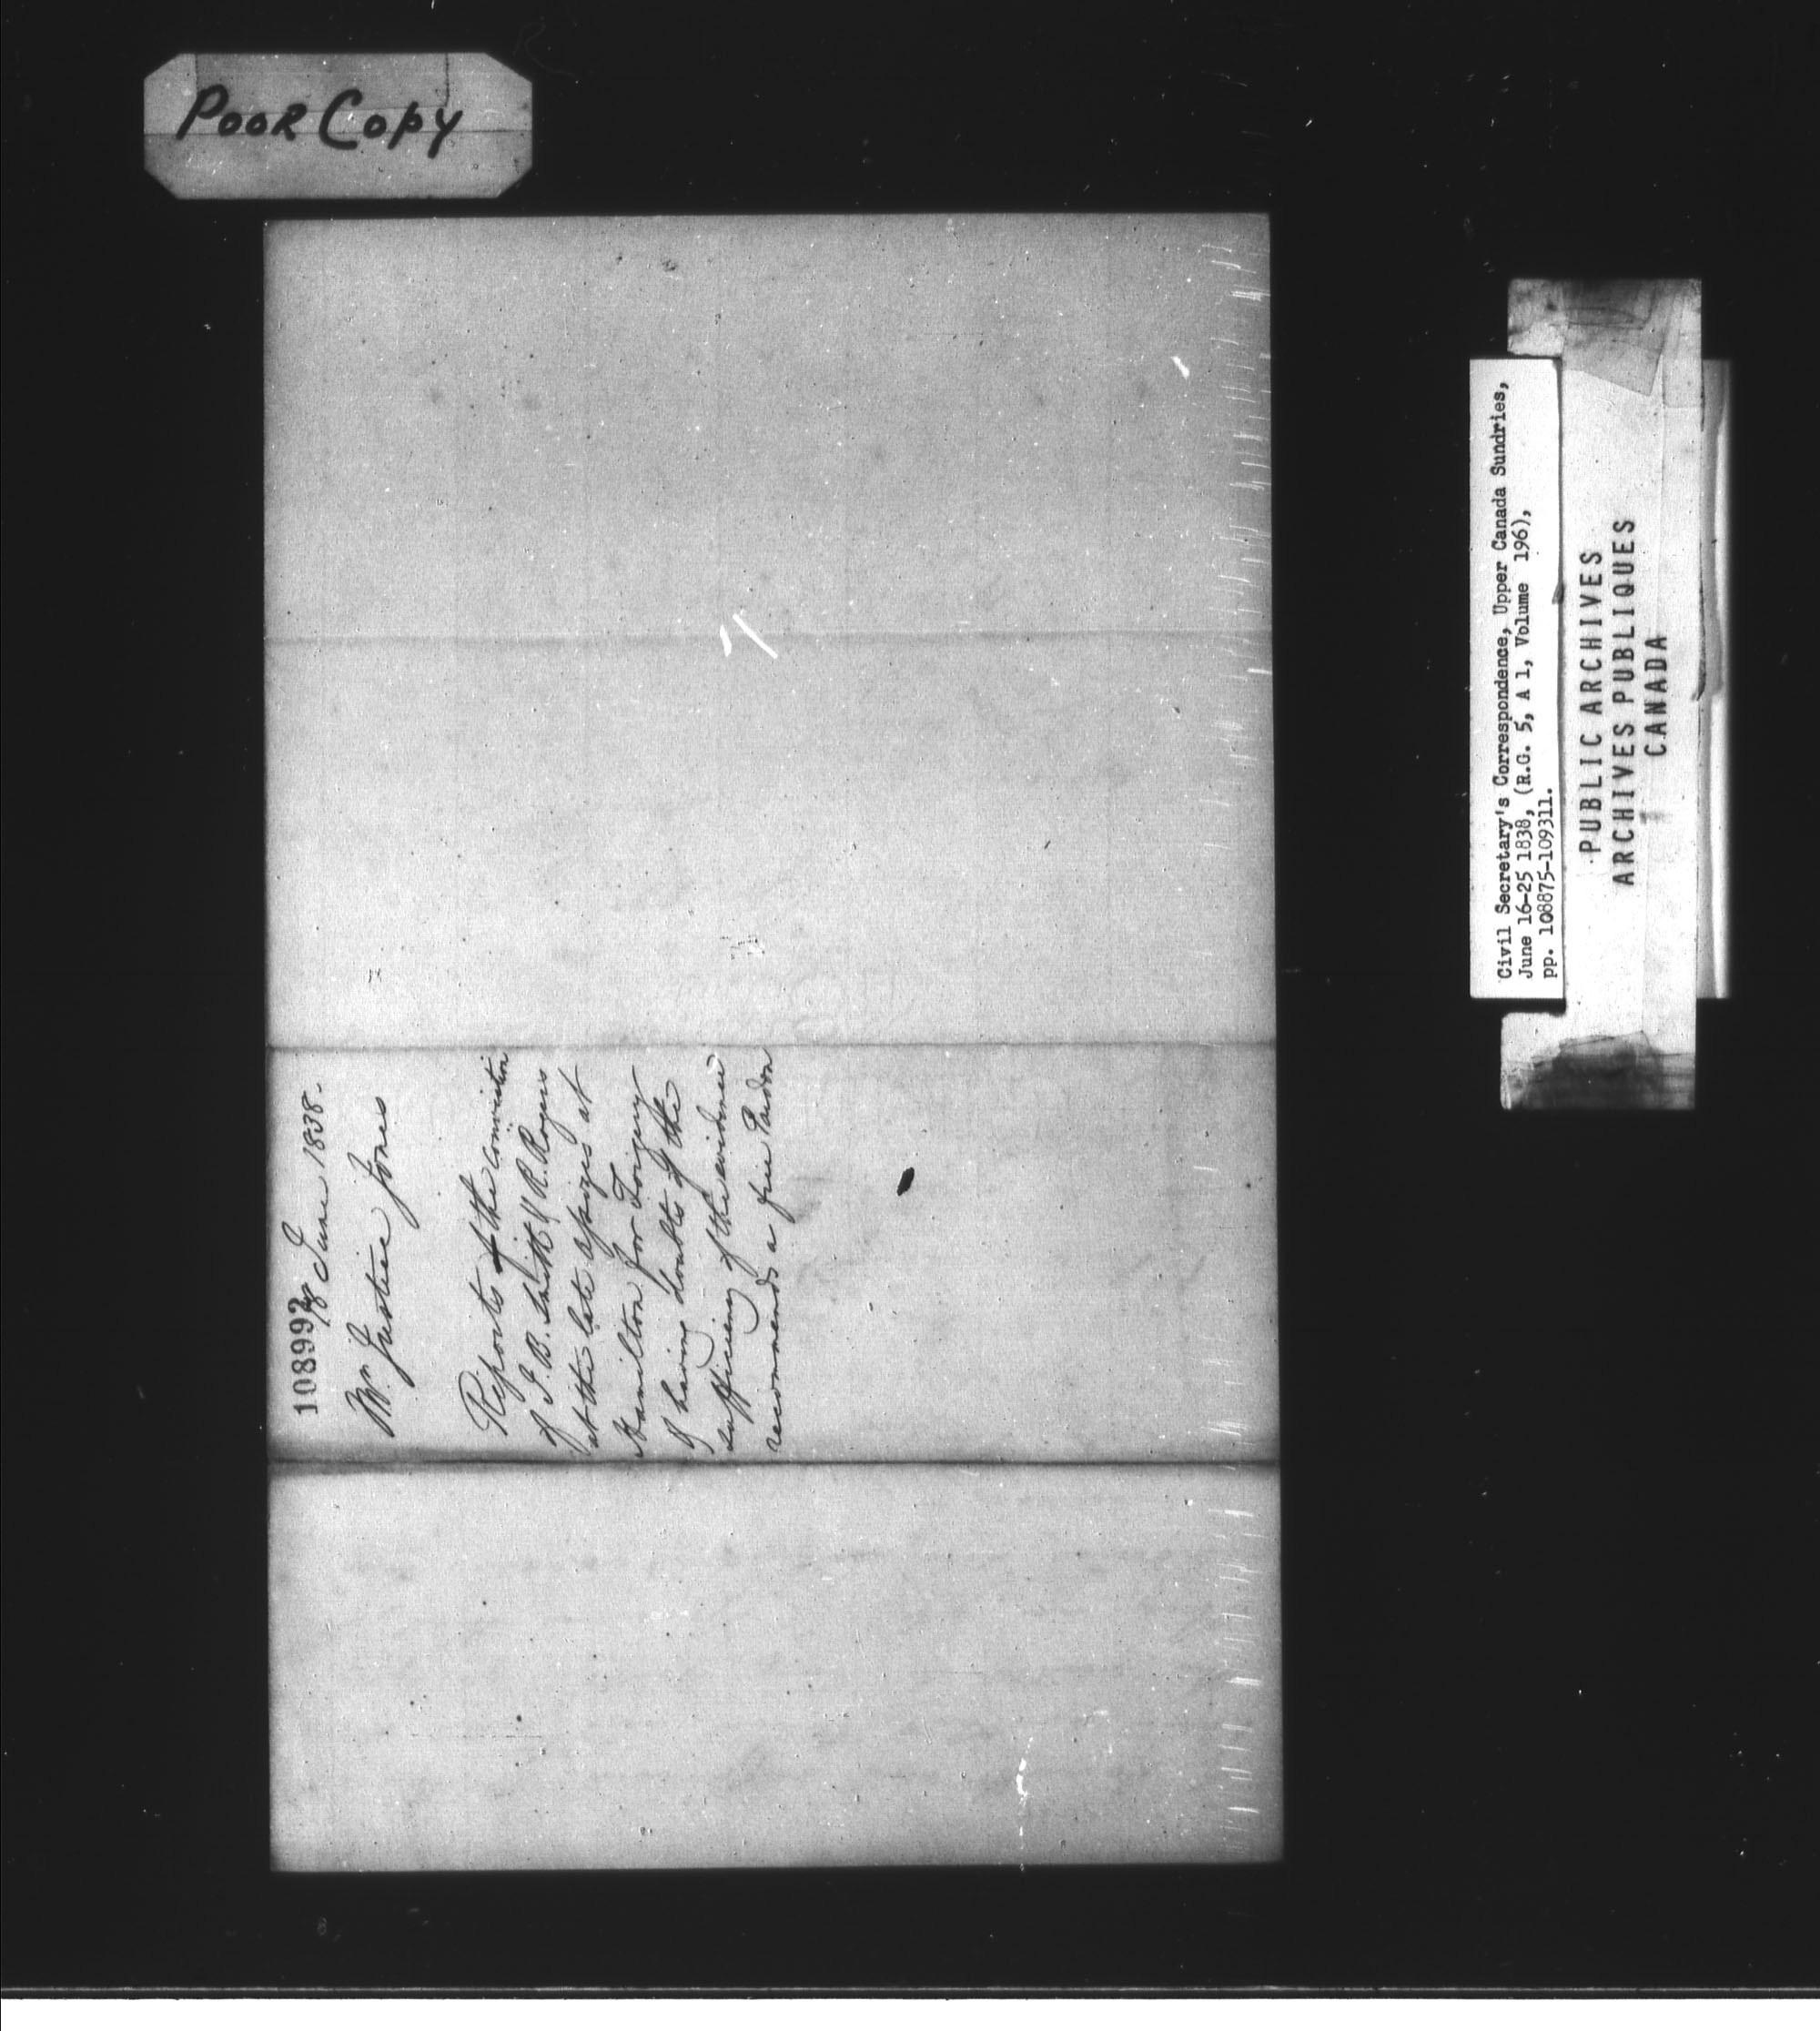 POOR COPY
108992
18 June 1838.
Mr. Justice Jones
Reports of the conviction
of J. B. Smith & R. Rogers
at the late assizes at
Hamilton for Forgery
& having doubts of the
sufficiency of the evidence
recommends a free Pardon
Civil Secretary's Correspondence, Upper Canada Sundries,
June 16-25 1838, (R.G. 5, A 1, Volume 196),
pp. 108875-109311.
PUBLIC ARCHIVES
ARCHIVES PUBLIQUES
CANADA